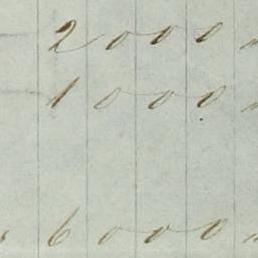 2000 "
1000 "
6000 "